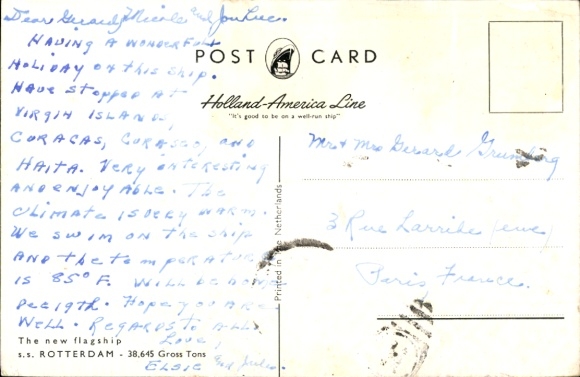 Dear Gerard, Nicole and Jon Luc.
HAVING A WONDERFULL
HOLIDAY ON THIS SHIP.
HAVE STOPPED AT
VIRGIN ISLAND,
CORACAS, CORASSO, AND
HAITA. VERY INTERESTING
AND ENJOYABLE. THE
CLIMATE IS VERY WARM.
WE SWIM ON THE SHIP
AND THE TEMPERATURE
IS 85° F. WILL BE HOME
DEC 19th. HOPE YOU ARE
WELL. REGARDS TO ALL
LOVE,
ELSIE and Jules.
The new flagship
s.s. ROTTERDAM - 38,645 Gross Tons
POST CARD
Holland-America Line
"It's good to be on a well-run ship"
Printed in the Netherlands
Mr & Mrs Gerard
3 Rue Larribe
Paris France.